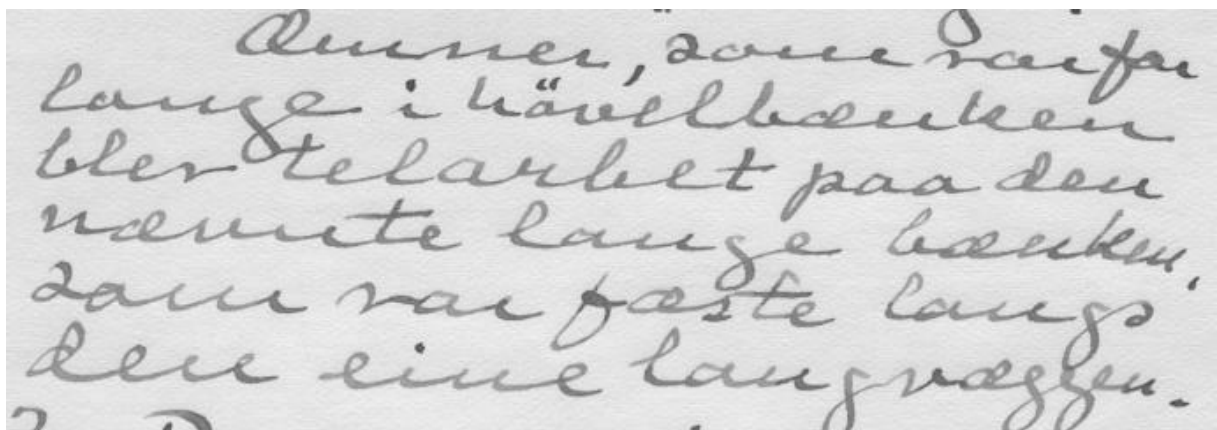 Æmner, som var for
lange i hövelbænken
blev telarbet paa den
nævnte lange bænken,
som var fæste langs
den eine langvæggen.